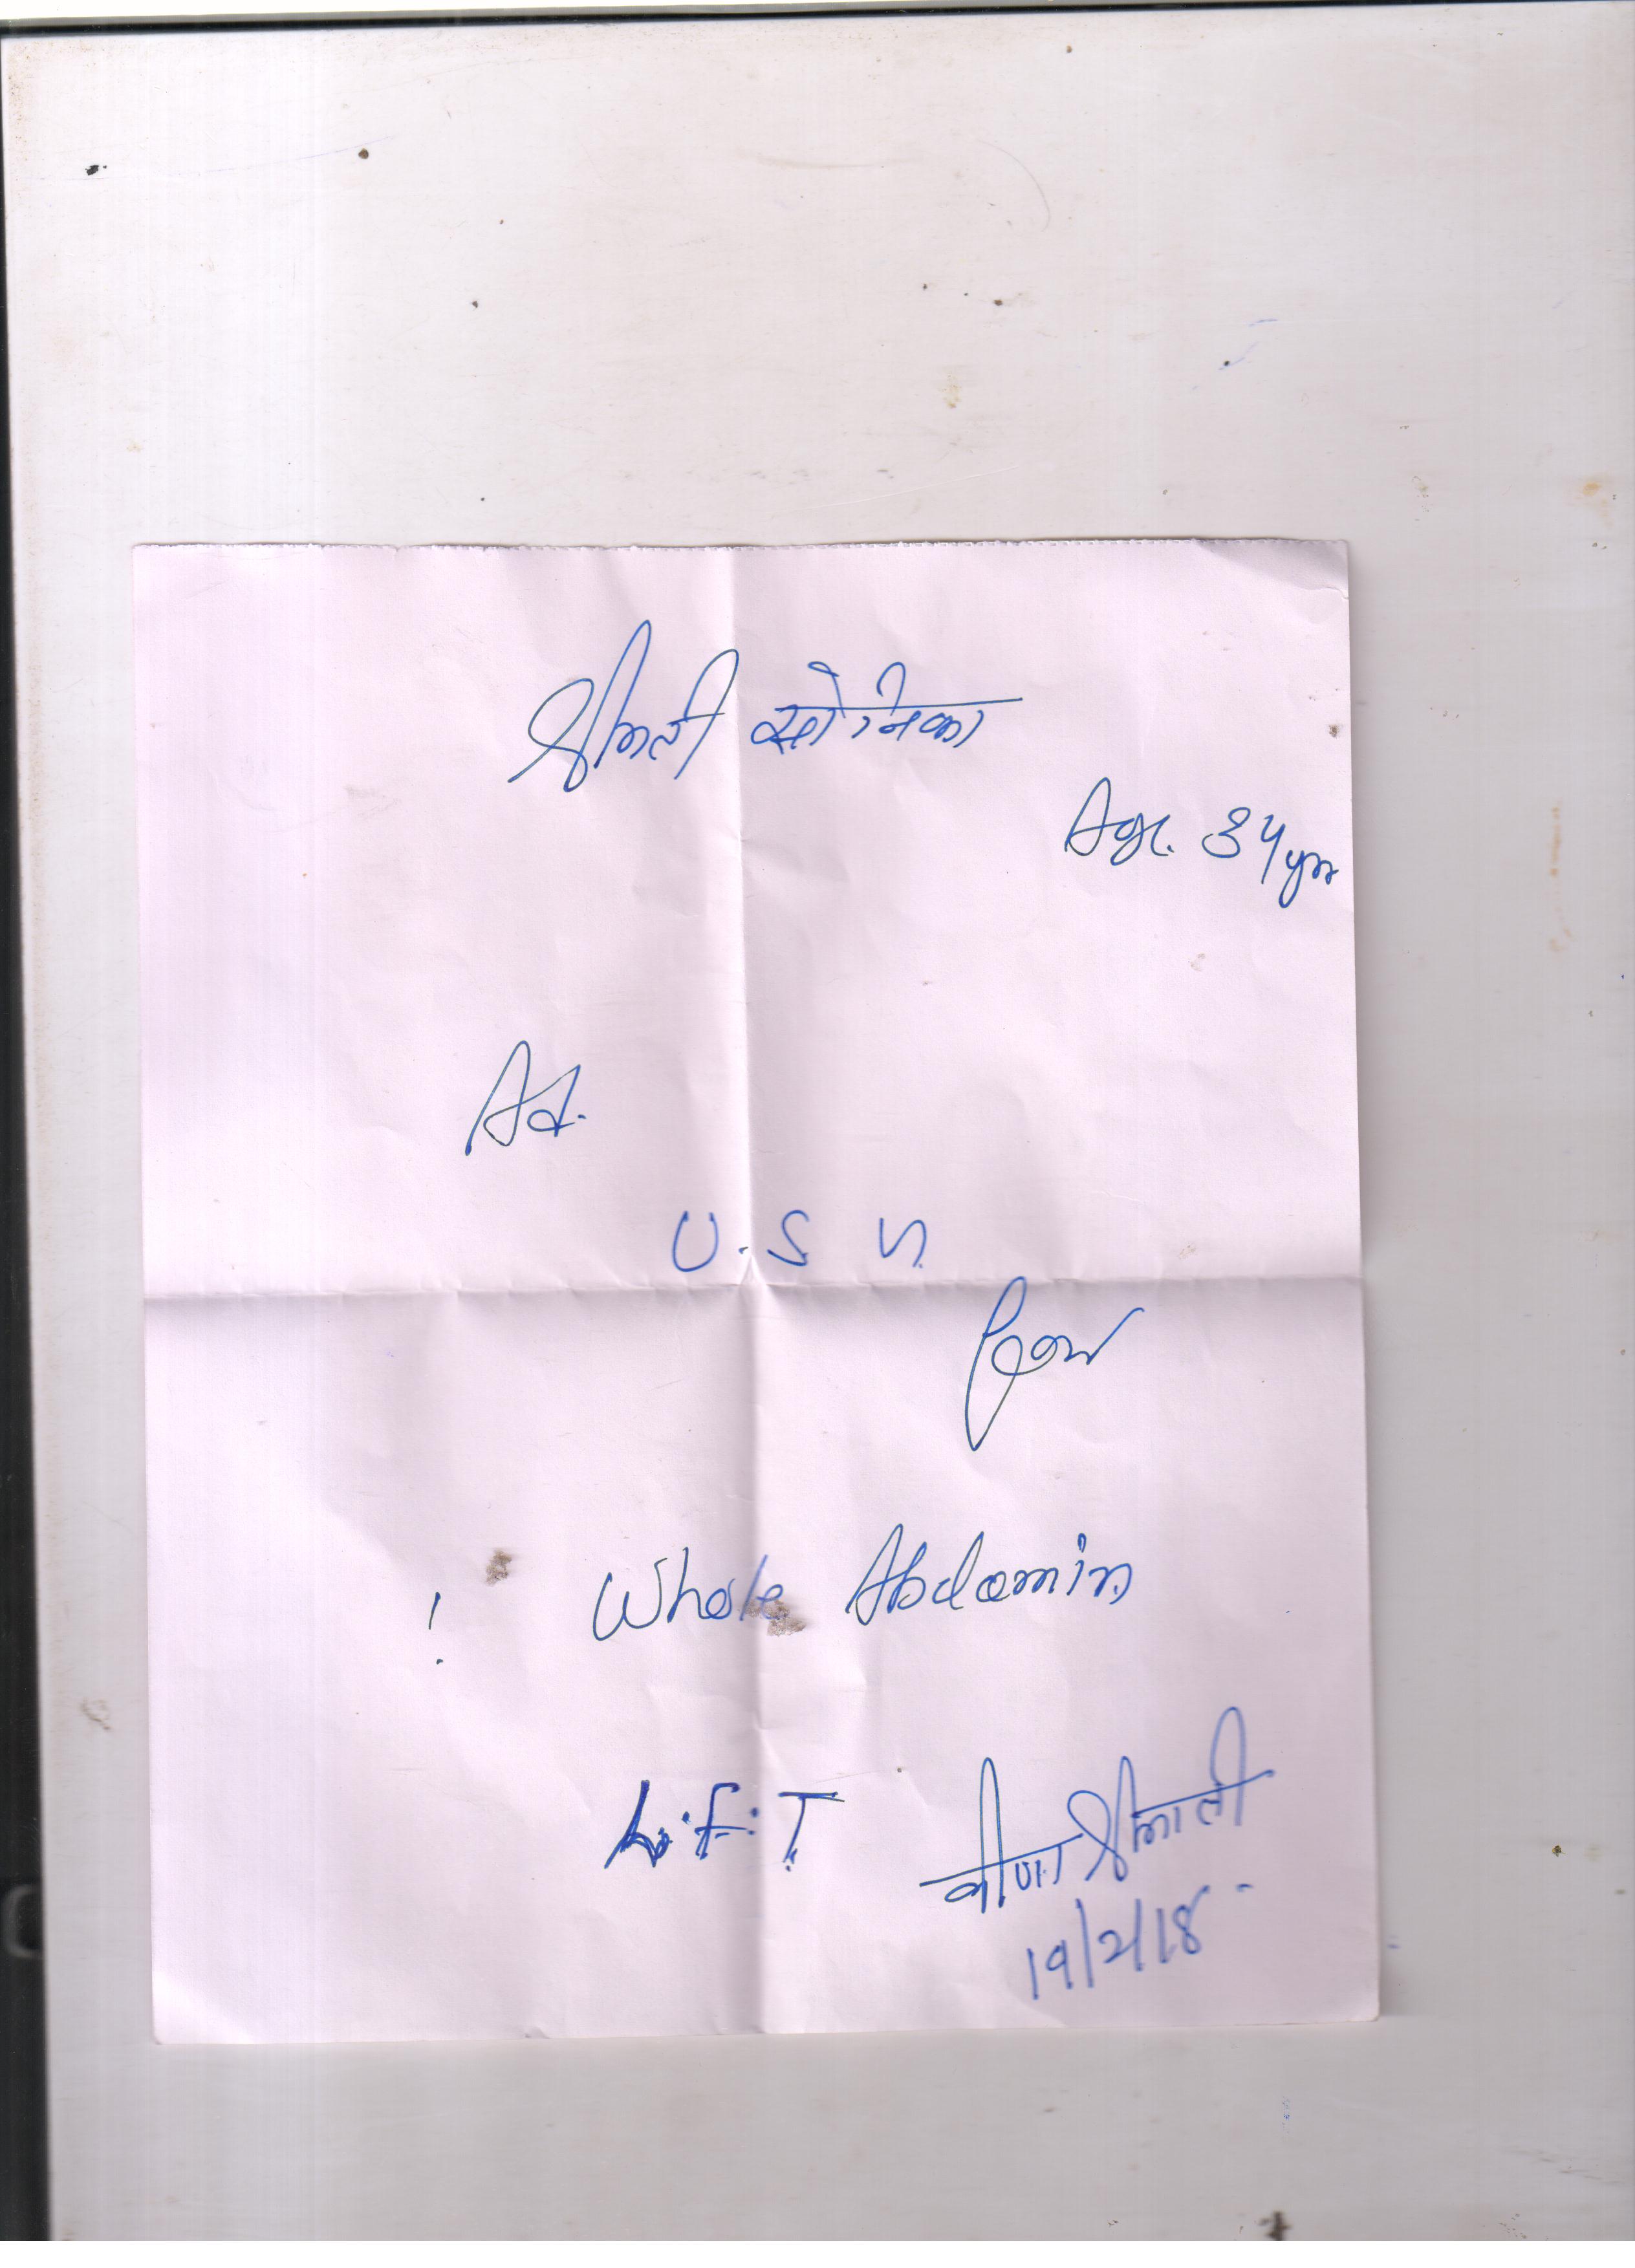 श्रीमती सोनिका
Age. 34 yrs
Ad.
U.S G.
For
Whole Abdomin
L.F.T
वीणा श्रीमाली
19/2/18